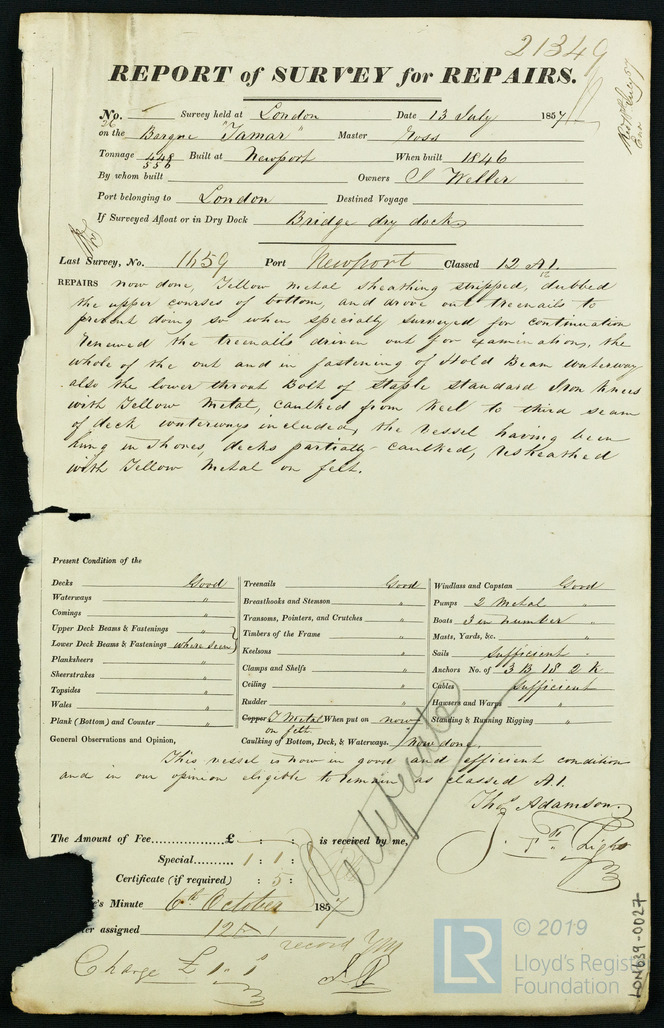 21349
REPORT of SURVEY for REPAIRS.
No. Survey held at London Date 13 July 1857
on the Barque "Tamar" Master Ross
Tonnage 448 Built at Newport When built 1846
556
By whom built Owners J Weller
Port belonging to London Destined Voyage
If Surveyed Afloat or in Dry Dock Bridge dry dock
Last Survey, No. 1659 Port Newport Classed 12 A1.
REPAIRS now done, Yellow metal sheathing stripped, dubbed
the upper courses of bottom, and drove out treenails to
prevent doing so when specially surveyed for continuation
renewed the treenails driven out for examination, the
whole of the out and in fastening of Hold Beam waterway
also the lower throat Bolt of Staple Standard Iron Knees
with Yellow Metal, caulked from Keel to third seam
of deck waterways included, the vessel having been
hung in Shores, decks partially caulked, resheathed
with Yellow Metal on felt.
Present Condition of the
Decks Good
Waterways "
Comings "
Upper Deck Beams & Fastenings "
Lower Deck Beams & Fastenings where seen
Planksheers "
Sheerstrakes "
Topsides "
Wales "
Plank (Bottom) and Counter "
Treenails Good
Breasthooks and Stemson "
Transoms, Pointers, and Crutches "
Timbers of the Frame "
Keelsons "
Clamps and Shelfs "
Ceiling "
Rudder "
Copper Y Metal When put on now
on felt
Caulking of Bottom, Deck, & Waterways. now done.
Windlass and Capstan Good
Pumps 2 Metal "
Boats 3 in number "
Masts, Yards, &c. "
Sails sufficient "
Anchors No. of 3 B 1 S 2 K
Cables sufficient
Hawsers and Warps "
Standing & Running Rigging "
General Observations and Opinion,
This vessel is now in good and efficient condition
and in our opinion eligible to remain as classed A1.
Thos. Adamson
J. Light
Certificate
The Amount of Fee......£ : : is received by me,
Special.......... 1 : 1 :
Certificate (if required) : 5 :
's Minute 6th October 1857
er assigned 12 A 1
record YM
Charge £ 1 " 1
LR © 2019
Lloyd's Register
Foundation
LON639-0027